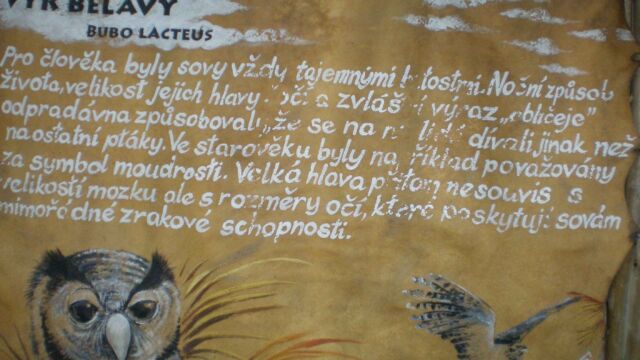 VÝR BĚLAVÝ
BUBO LACTEUS
Pro člověka byly sovy vždy tajemnými Noční způsob
života, velikost jejich hlavy očí a zvláštní výraz „obličeje”
odpradávna způsobovaly, že se na ně lidé dívali jinak než
na ostatní ptáky. Ve starověku byly například považovány
za symbol moudrosti. Velká hlava přitom nesouvisí s
velikostí mozku ale s rozměry očí, které poskytují sovám
mimořádné zrakové schopnosti.